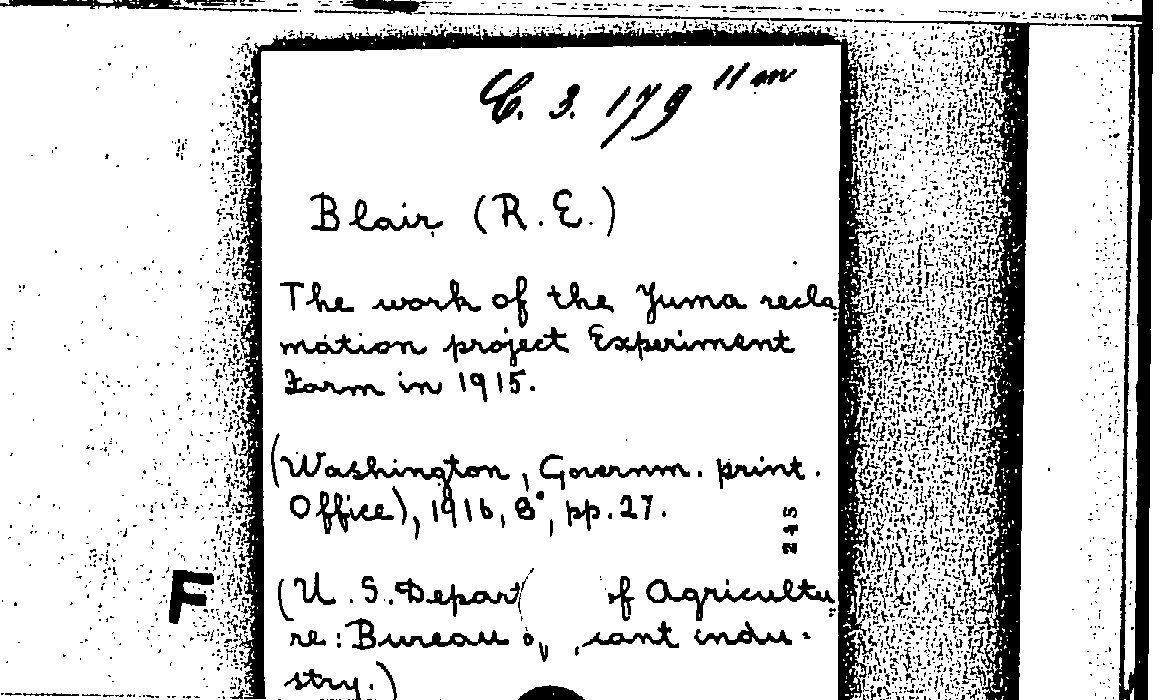 C. 3. 179 11 m
Blair (R. E.)
The work of the Yuma recla
mation project Experiment
Farm in 1915.
(Washington, Governm. print.
Office), 1916, 8°, pp. 27.
245
(U. S. Depart of Agricultu
re: Bureau indu-
stry.)
F